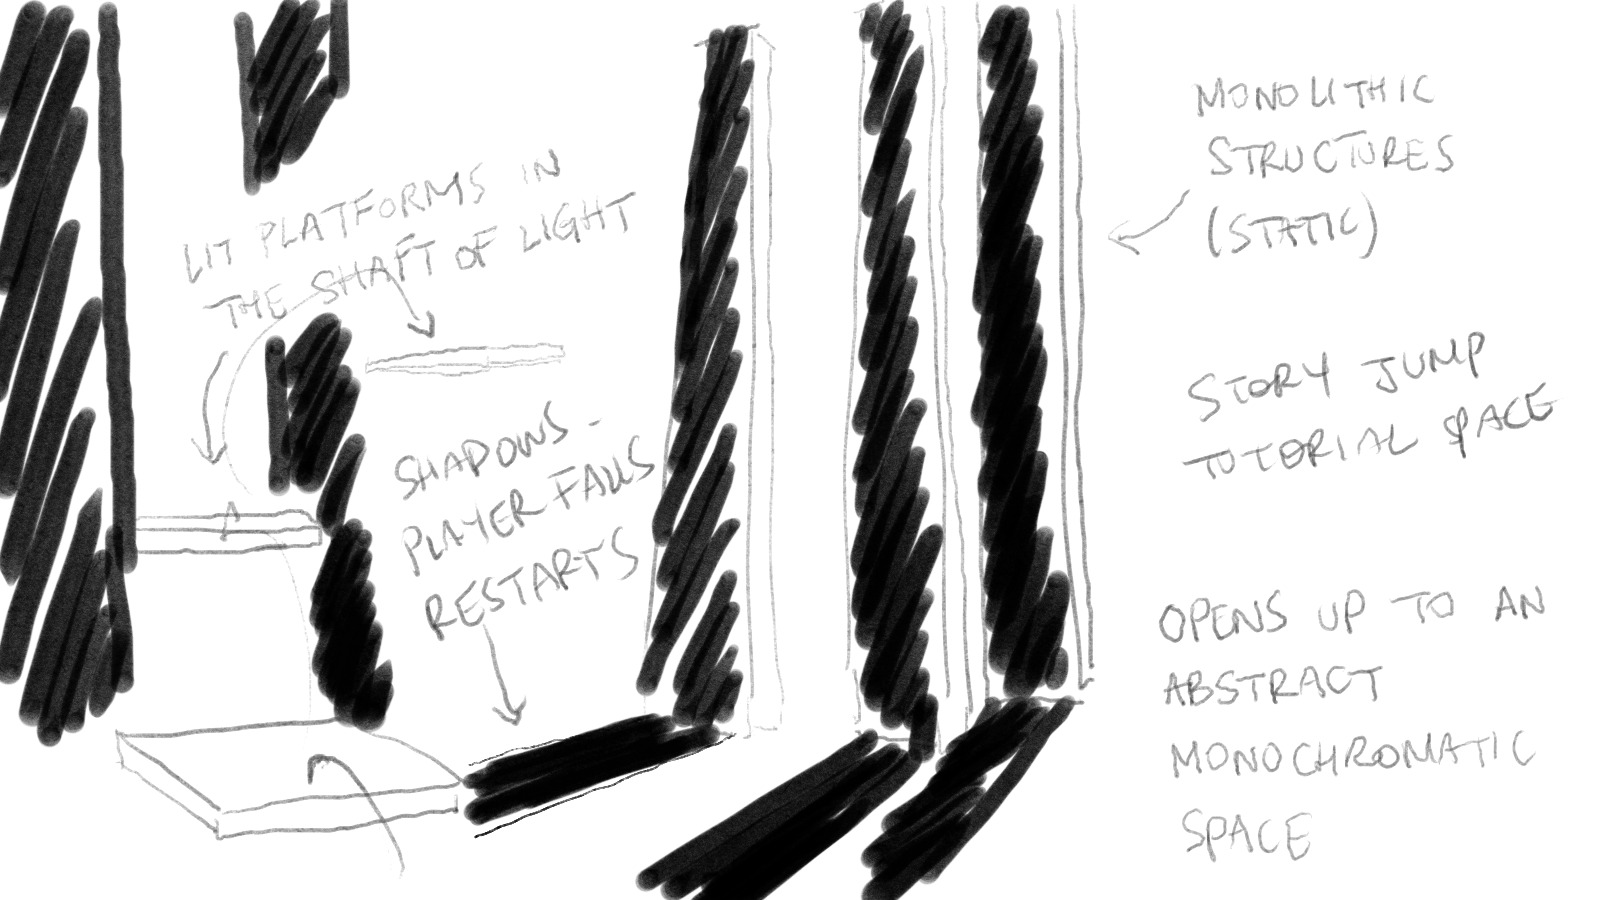 LIT PLATFORMS IN
THE SHAFT OF LIGHT
SHADOWS -
PLAYER FALLS
RESTARTS
MONOLITHIC
STRUCTURES
(STATIC)
STORY JUMP
TUTORIAL SPACE
OPENS UP TO AN
ABSTRACT
MONOCHROMATIC
SPACE